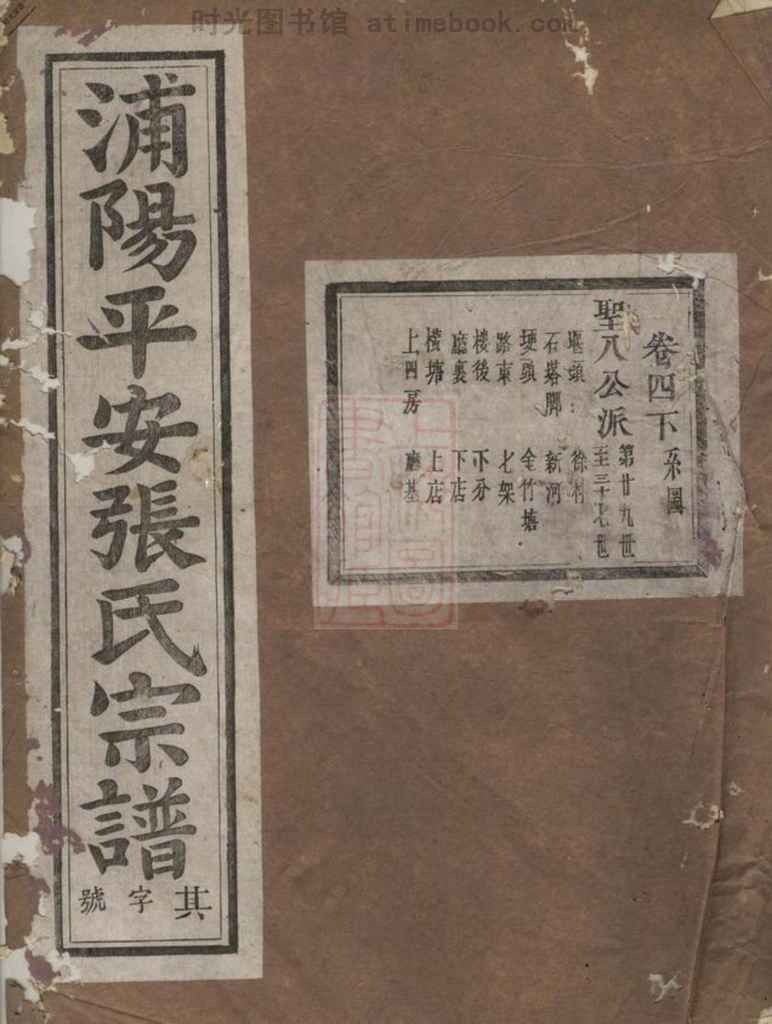 时光图书馆 atimebook.com
浦陽平安張氏宗譜
其字號
卷四下 系圖
聖八公派 第廿九世至三十七世
堰頭 徐村
石塔脚 新河
埂頭 金竹塘
路東 七架
楼後 下分
廳裏 下店
橫塘 上店
上四房 廳基